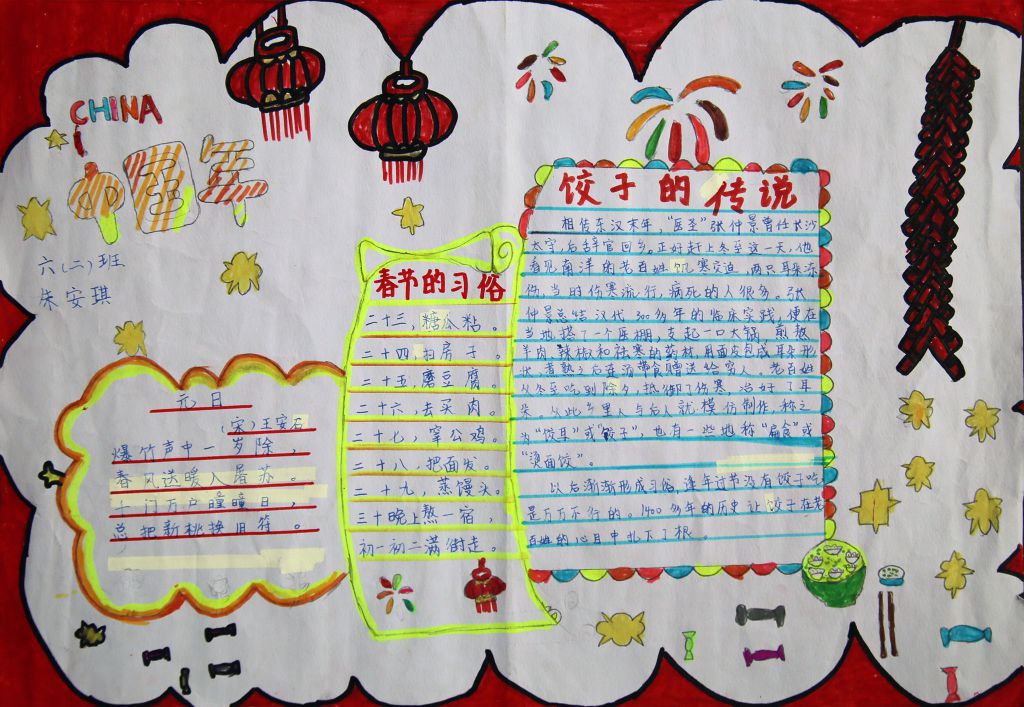 CHINA
中国年
六(二)班
朱安琪
元日
(宋)王安石
爆竹声中一岁除，
春风送暖入屠苏。
千门万户瞳瞳日，
总把新桃换旧符。
春节的习俗
二十三，糖瓜粘。
二十四，扫房子。
二十五，磨豆腐。
二十六，去买肉。
二十七，宰公鸡。
二十八，把面发。
二十九，蒸馒头。
三十晚上熬一宿，
初一初二满街走。
饺子的传说
相传东汉末年，“医圣”张仲景曾任长沙
太守，后辞官回乡。正好赶上冬至这一天，他
看见南洋的老百姓饥寒交迫，两只耳朵冻
伤，当时伤寒流行，病死的人很多。张
仲景总结汉代300多年的临床实践，便在
当地搭了一个医棚，支起一口大锅，煎熬
羊肉，辣椒和祛寒的药材，用面皮包成耳朵形
状，煮熟之后连汤带食赠送给穷人。老百姓
从冬至吃到除夕，抵御了伤寒，治好了耳
朵。从此乡里人与后人就模仿制作，称之
为“饺耳”或“饺子”，也有一些地称“扁食”或
“烫面饺”。
以后渐渐形成习俗，逢年过节没有饺子吃
是万万不行的。1400多年的历史让饺子在老
百姓的心目中扎下了根。